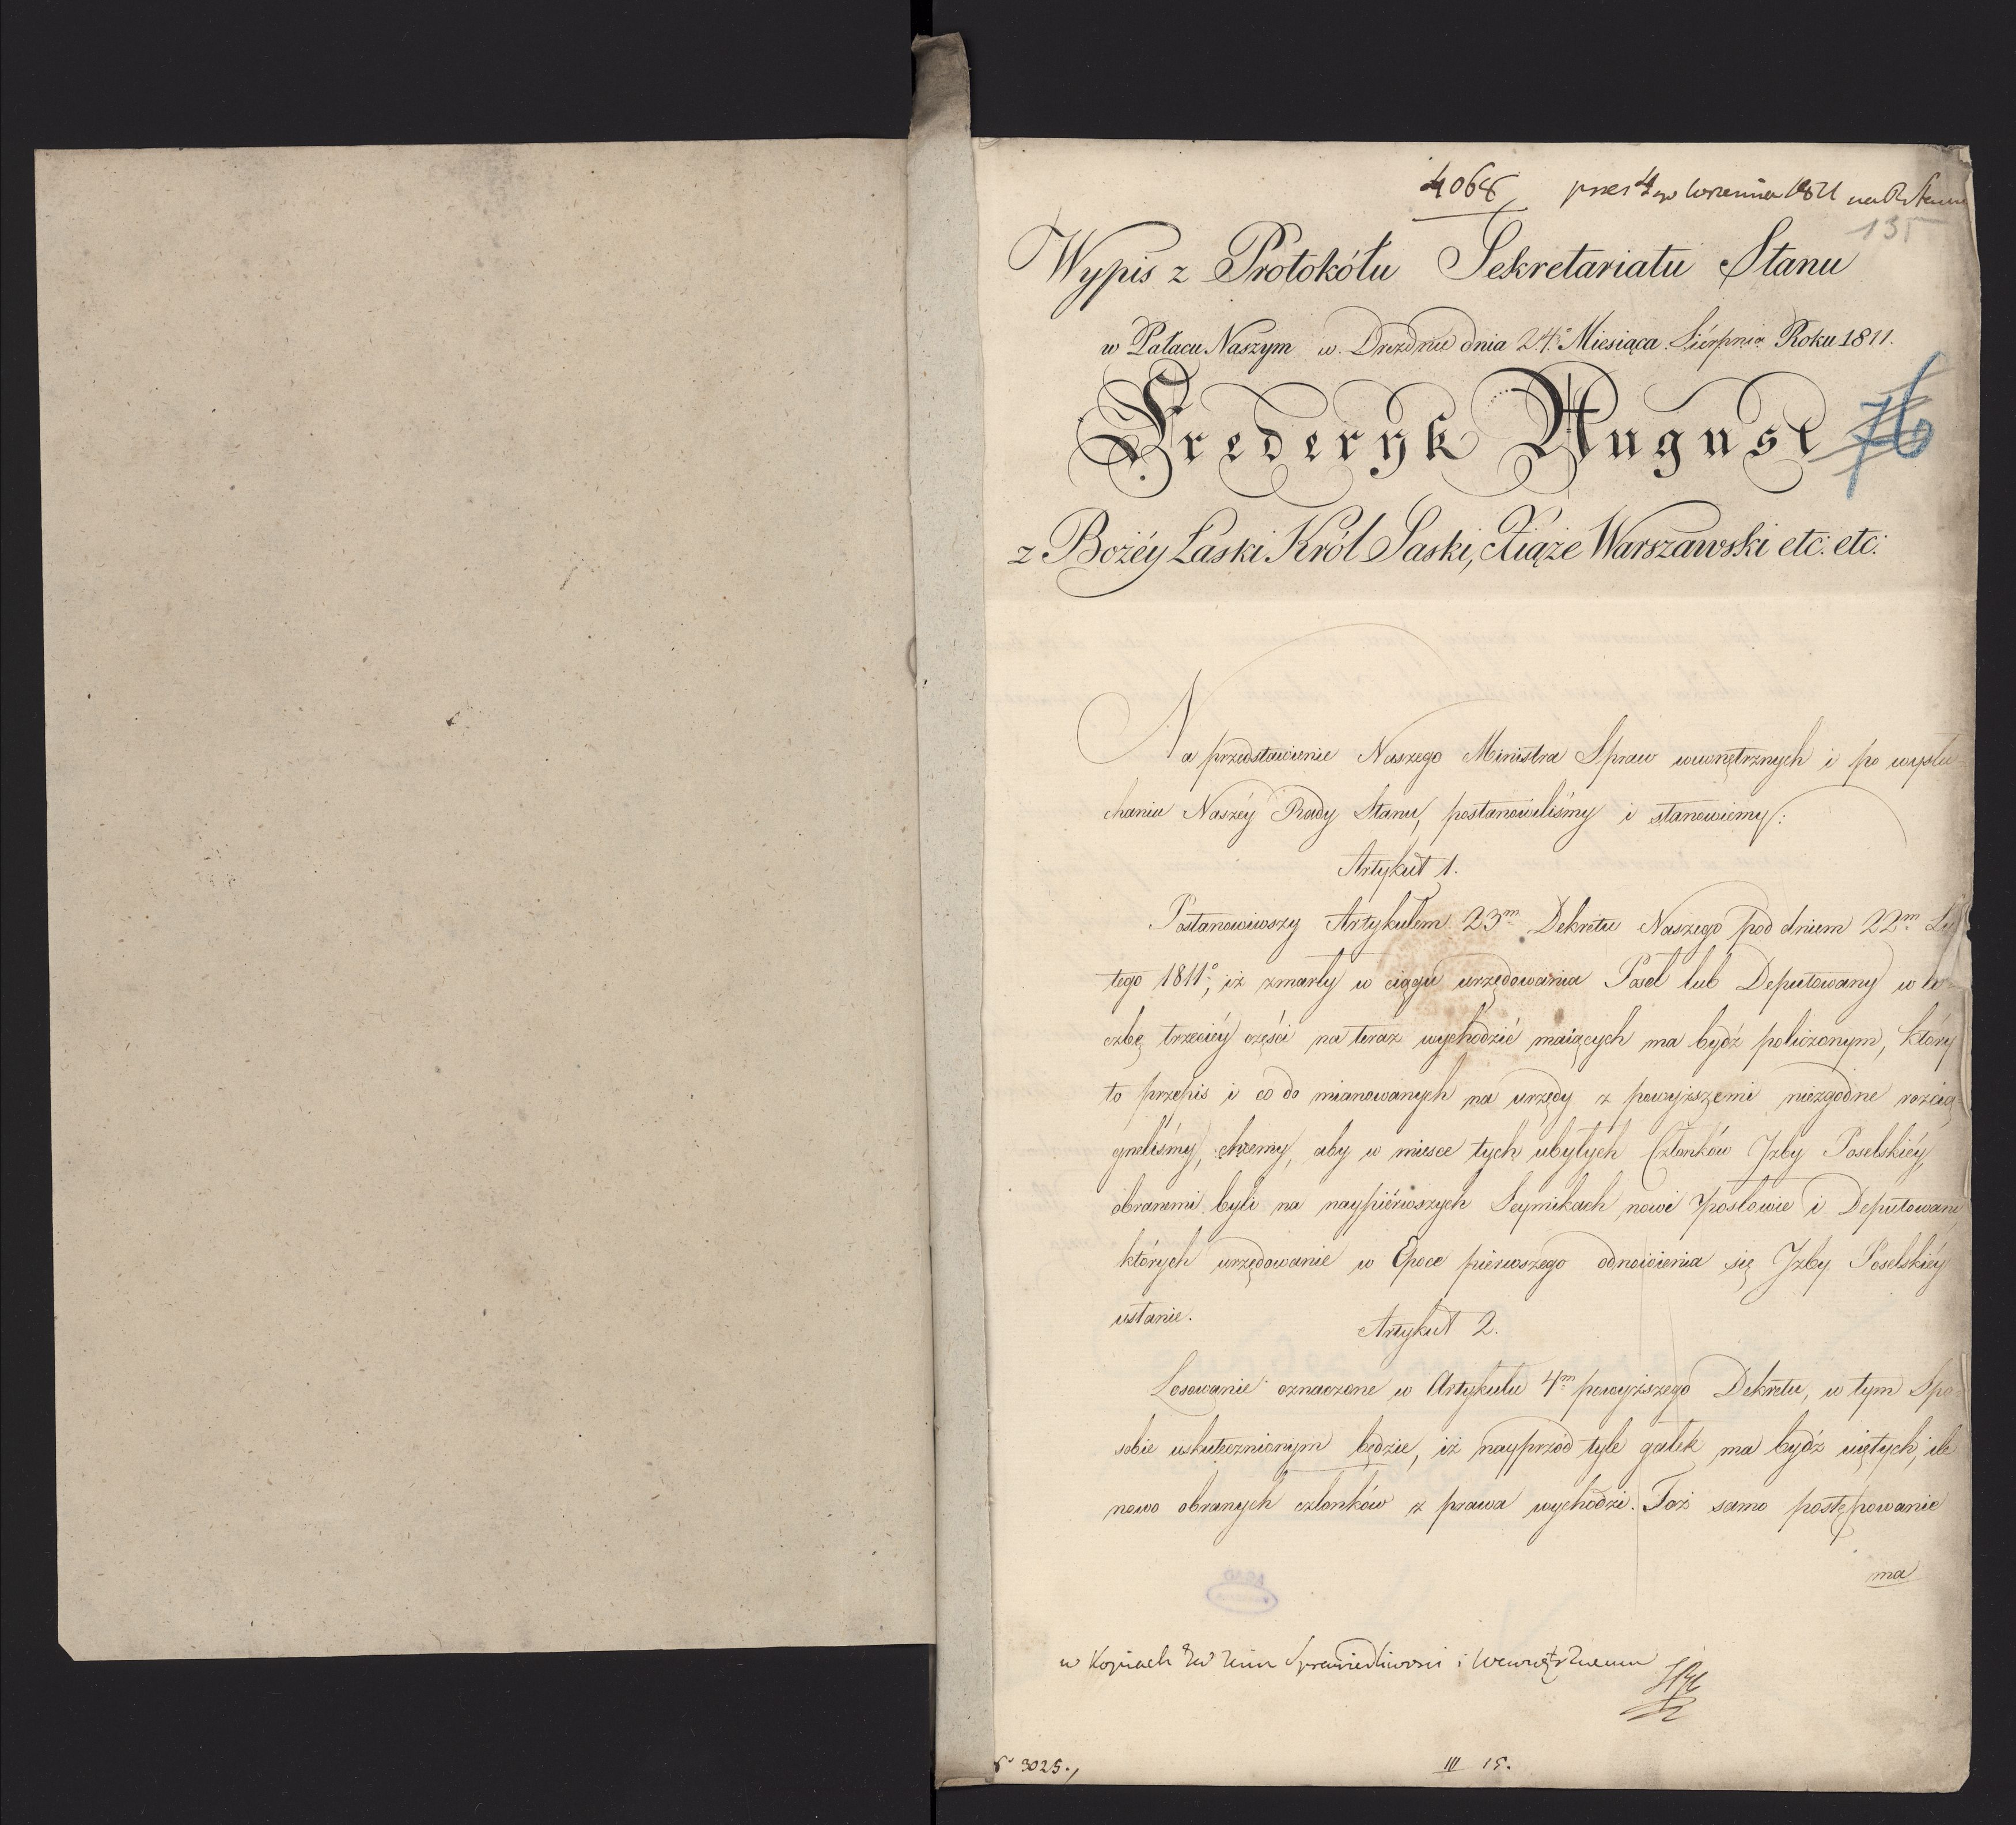 4068 pres 4go Września 1811 na R. Stanu
135
Wypis z Protokółu Sekretariatu Stanu
w Pałacu Naszym w Dreznie dnia 24° Miesiąca Siérpnia Roku 1811.
Fryderyk August
76
z Bożéy Łaski Król Saski, Xiąże Warszawski etc: etc:
Na przedstawienie Naszego Ministra Spraw wewnętrznych i po wysłu-
chaniu Naszéy Rady Stanu, postanowiliśmy i stanowiemy:
Artykuł 1.
Postanowiwszy Artykułem 23m Dekretu Naszego pod dniem 22m Lu
tego 1811°, iż zmarły w ciągu urzędowania Poseł lub Deputowany w li-
czbę trzeciéy części na teraz wychodzić maiących ma bydź policzonym, który
to przepis i co do mianowanych na urzędy z powyższemi niezgodne rozcią-
gneliśmy, chcemy, aby w miesce tych ubyłych Członków Jzby Poselskiéy,
obranemi byli na naypiérwszych Seymikach nowi posłowie i Deputowani
których urzędowanie w Epoce piérwszego odnowienia się Jzby Poselskiéy
ustanie.
Artykuł 2.
Losowanie oznaczone w Artykułu 4m powyższego Dekretu, w tym Spo-
sobie uskutecznionym będzie, iż nayprzód tyle gałek ma bydź uiętych, ile
nowo obranych członków z prawa wychodzi. Toż samo postępowanie
ma
w Kopiach Sprawiedliwosci i Wewnętrznemu
3025.
III 15.